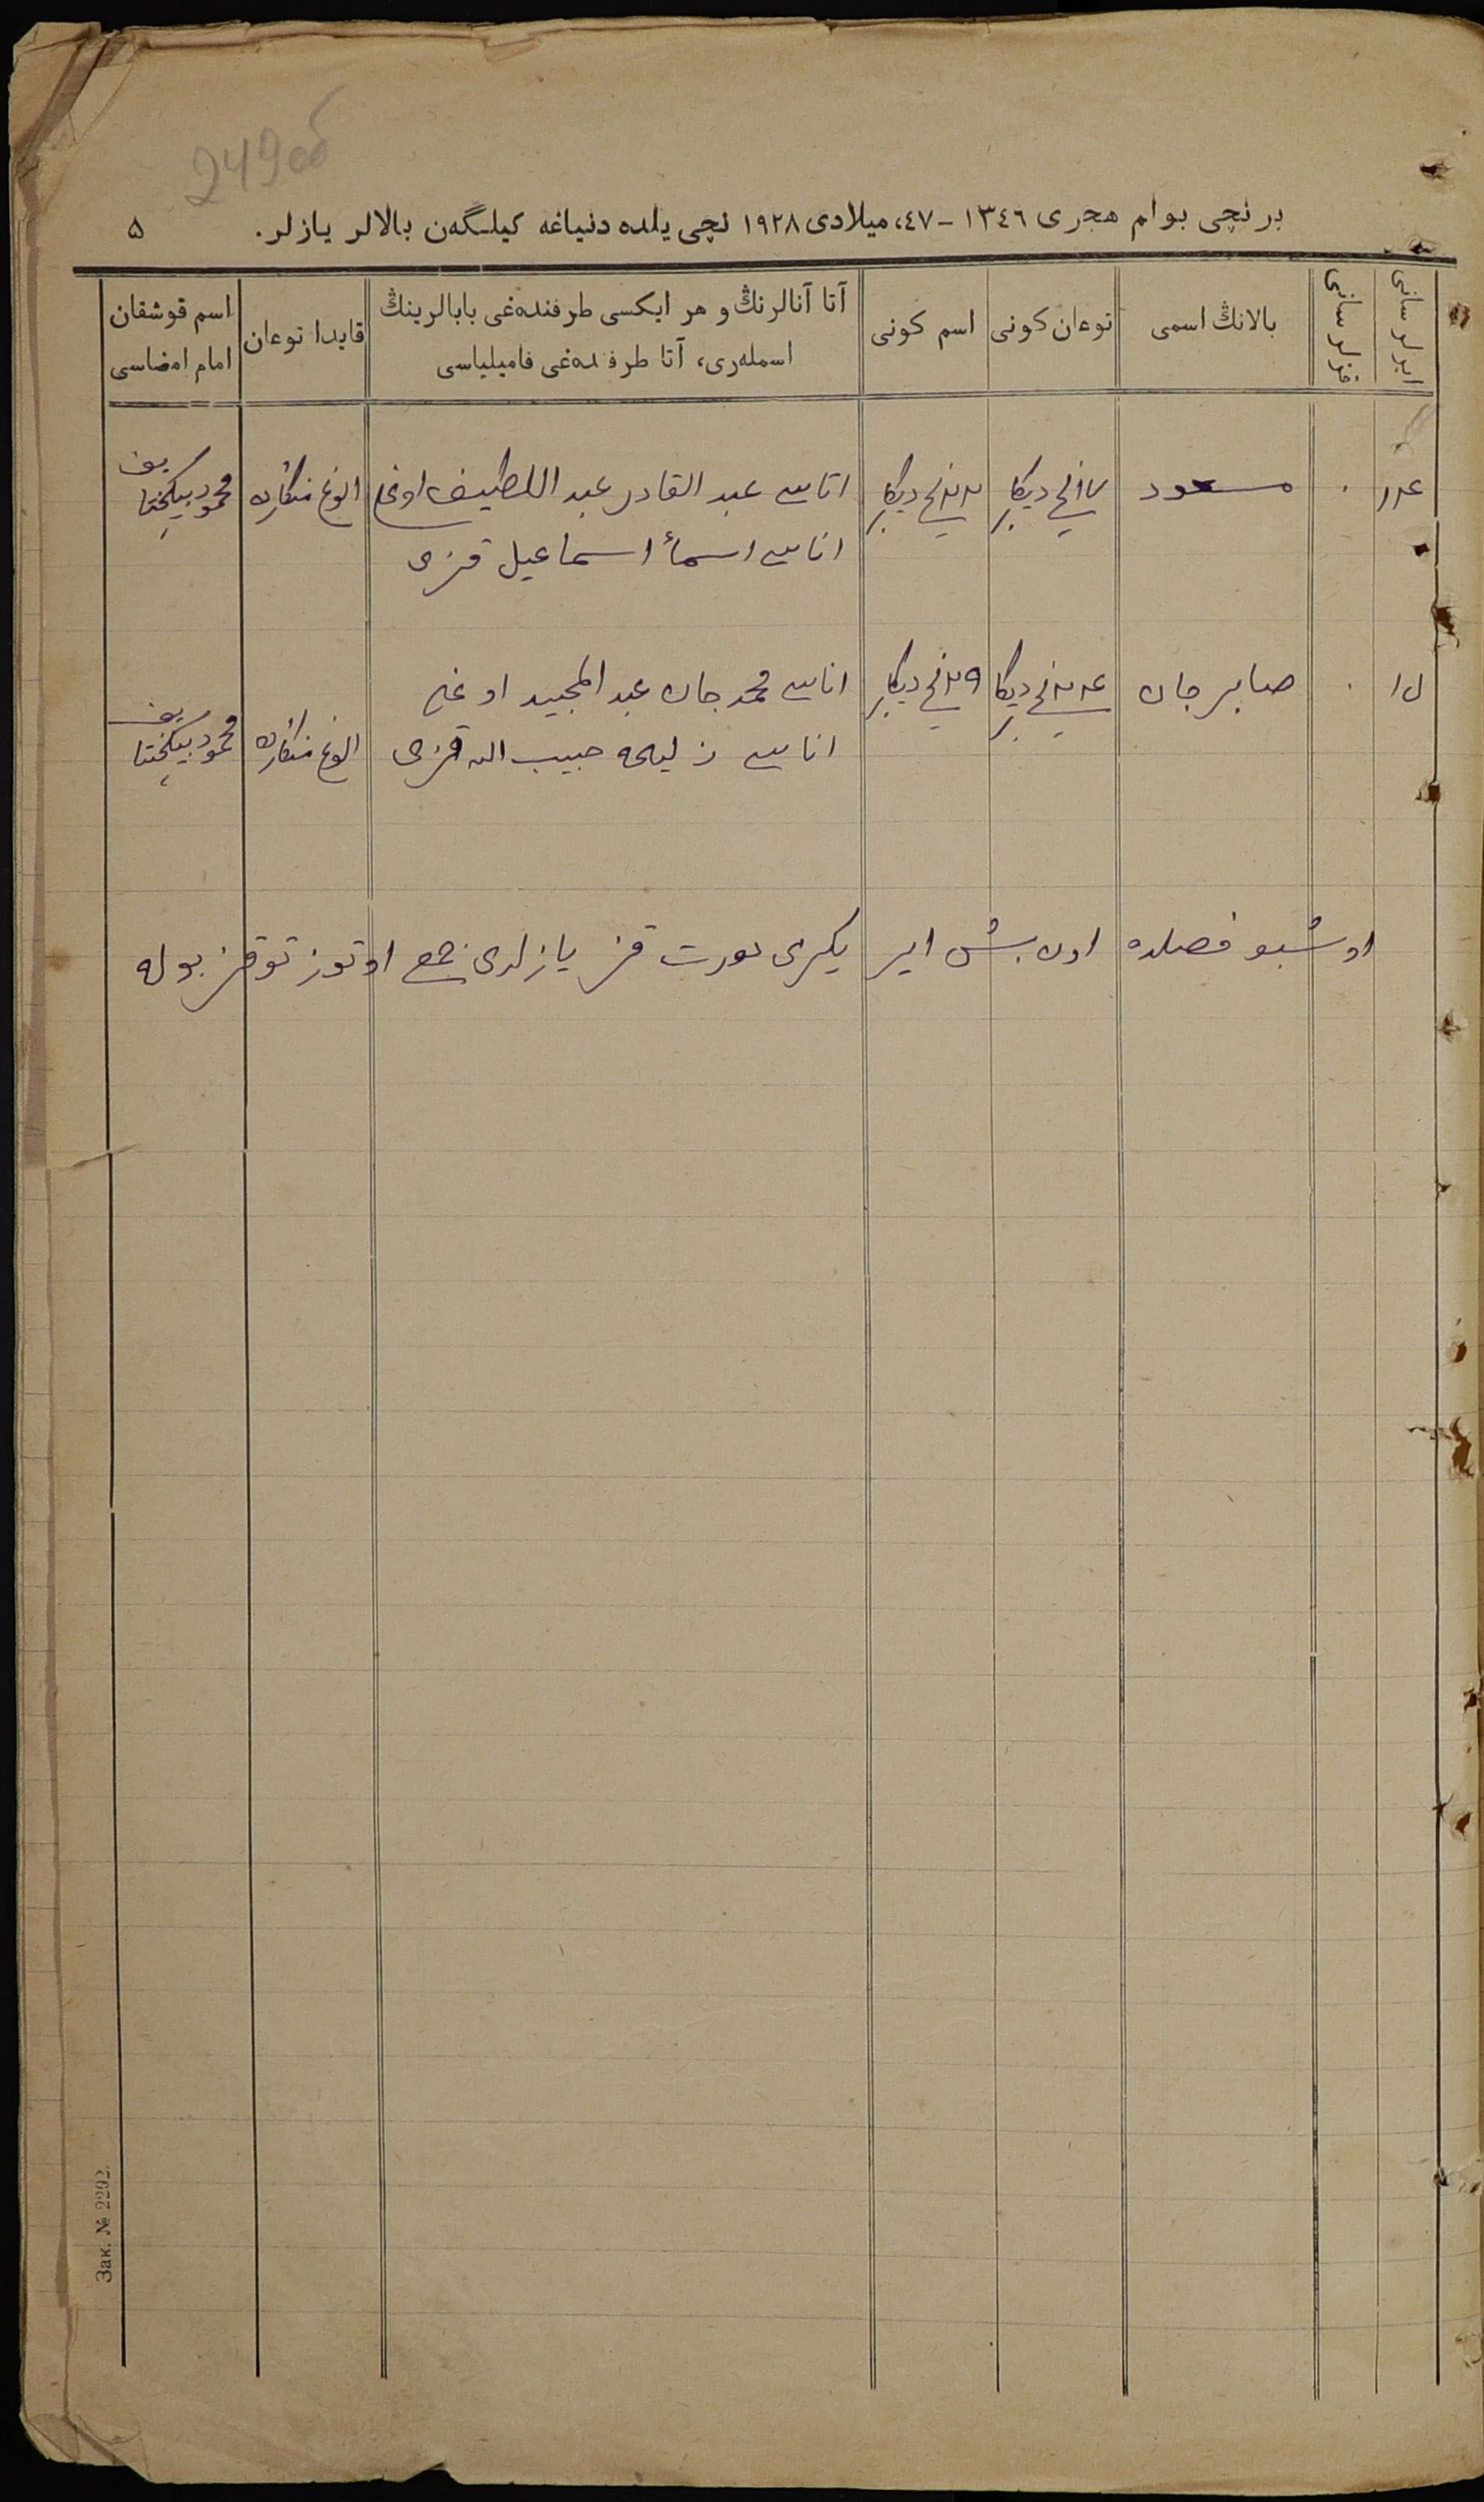 249 об
برنچی بوام هجری ١٣٤٦ -٤٧، میلادی ١٩٢٨ نچی یلده دنیاغه کیلگەن بالالر یازلر. ۵
ایرلر سانی
قزلر سانی
بالانڭ اسمی
توعان کونی
اسم کونی
آتا آنالرنڭ و هر ایکسی طرفندەغی بابالرینڭ
اسملەری، آتا طرفدەغی فامیلیاسی
قایدا توعان
اسم قوشقان
امام امضاسی
١٤ ٠ مسعود ١٧نچی دیکابر ٢٢نچی دیکابر اتاسی عبد القادر عبد اللطیف اوغلی الوغ
اناسی اسمأ اسماعیل قزی
١٥ ٠ صابرجان ٢٤نچی دیکابر ٢٩نچی دیکابر اتاسی محمدجان عبد المجید اوغلی
اناسی زلیحه حبیب الله قزی الوغ
اوشبو فصلده اون بش ایر یکرمی دورت قز یازلدی جمع اوتوز توقز بوله
Зак. № 2292.